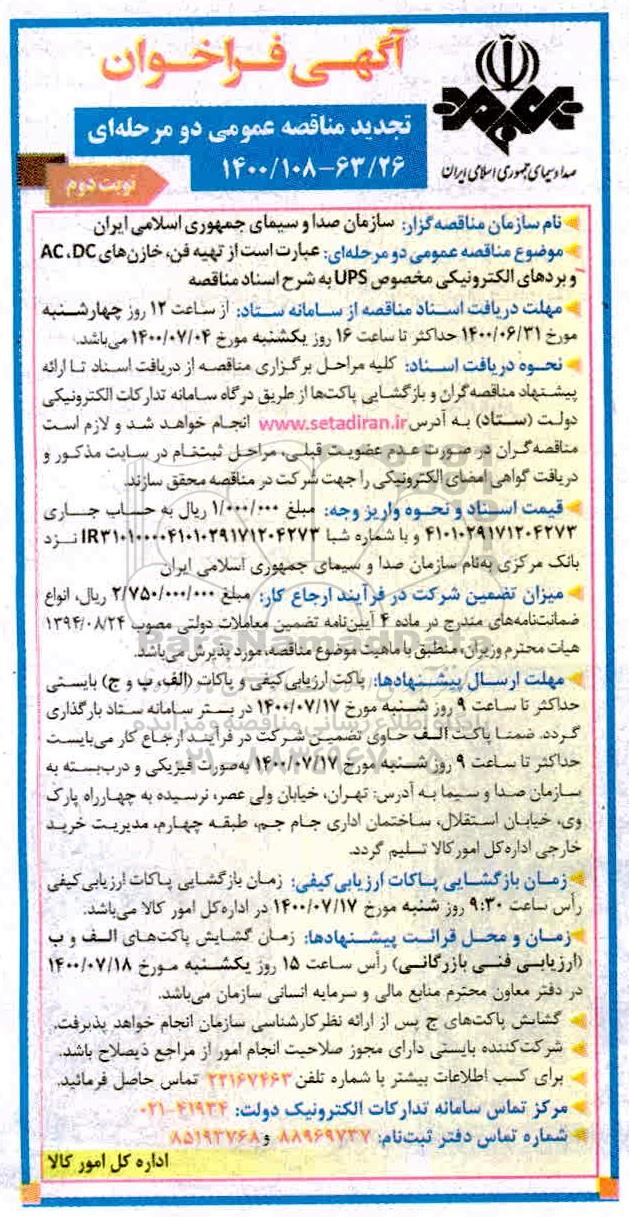 آگهی فراخوان
تجدید مناقصه عمومی دو مرحله‌ای
۱۴۰۰/۱۰۸-۶۳/۲۶
صدا و سیمای جمهوری اسلامی ایران
نوبت دوم
نام سازمان مناقصه‌گزار: سازمان صدا و سیمای جمهوری اسلامی ایران
موضوع مناقصه عمومی دو مرحله‌ای: عبارت است از تهیه فن، خازن‌های AC ،DC
و بردهای الکترونیکی مخصوص UPS به شرح اسناد مناقصه
مهلت دریافت اسناد مناقصه از سامانه ستاد: از ساعت ۱۲ روز چهارشنبه
مورخ ۱۴۰۰/۰۶/۳۱ حداکثر تا ساعت ۱۶ روز یکشنبه مورخ ۱۴۰۰/۰۷/۰۴ می‌باشد.
نحوه دریافت اسناد: کلیه مراحل برگزاری مناقصه از دریافت اسناد تا ارائه
پیشنهاد مناقصه‌گران و بازگشایی پاکت‌ها از طریق درگاه سامانه تدارکات الکترونیکی
دولت (ستاد) به آدرس www.setadiran.ir انجام خواهد شد و لازم است
مناقصه‌گران در صورت عدم عضویت قبلی، مراحل ثبت‌نام در سایت مذکور و
دریافت گواهی امضای الکترونیکی را جهت شرکت در مناقصه محقق سازند.
قیمت اسناد و نحوه واریز وجه: مبلغ ۱/۰۰۰/۰۰۰ ریال به حساب جاری
۴۱۰۱۰۲۹۱۷۱۲۰۴۲۷۳ و با شماره شبا IR۳۱۰۱۰۰۰۰۴۱۰۱۰۲۹۱۷۱۲۰۴۲۷۳ نزد
بانک مرکزی به‌نام سازمان صدا و سیمای جمهوری اسلامی ایران
میزان تضمین شرکت در فرآیند ارجاع کار: مبلغ ۲/۷۵۰/۰۰۰/۰۰۰ ریال، انواع
ضمانت‌نامه‌های مندرج در ماده ۴ آیین‌نامه تضمین معاملات دولتی مصوب ۱۳۹۴/۰۸/۲۴
هیات محترم وزیران، منطبق با ماهیت موضوع مناقصه، مورد پذیرش می‌باشد.
مهلت ارسال پیشنهادها: پاکت ارزیابی کیفی و پاکات (الف، ب و ج) بایستی
حداکثر تا ساعت ۹ روز شنبه مورخ ۱۴۰۰/۰۷/۱۷ در بستر سامانه ستاد بارگذاری
گردد. ضمنا پاکت الف حاوی تضمین شرکت در فرآیند ارجاع کار می‌بایست
حداکثر تا ساعت ۹ روز شنبه مورخ ۱۴۰۰/۰۷/۱۷ به‌صورت فیزیکی و درب‌بسته به
سازمان صدا و سیما به آدرس: تهران، خیابان ولی عصر، نرسیده به چهارراه پارک
وی، خیابان استقلال، ساختمان اداری جام جم، طبقه چهارم، مدیریت خرید
خارجی اداره‌کل امور کالا تسلیم گردد.
زمان بازگشایی پاکات ارزیابی کیفی: زمان بازگشایی پاکات ارزیابی کیفی
رأس ساعت ۹:۳۰ روز شنبه مورخ ۱۴۰۰/۰۷/۱۷ در اداره‌کل امور کالا می‌باشد.
زمان و محل قرائت پیشنهادها: زمان گشایش پاکت‌های الف و ب
(ارزیابی فنی بازرگانی) رأس ساعت ۱۵ روز یکشنبه مورخ ۱۴۰۰/۰۷/۱۸
در دفتر معاون محترم منابع مالی و سرمایه انسانی سازمان می‌باشد.
گشایش پاکت‌های ج پس از ارائه نظر کارشناسی سازمان انجام خواهد پذیرفت.
شرکت‌کننده بایستی دارای مجوز صلاحیت انجام امور از مراجع ذیصلاح باشد.
برای کسب اطلاعات بیشتر با شماره تلفن ۲۲۱۶۷۴۶۳ تماس حاصل فرمائید.
مرکز تماس سامانه تدارکات الکترونیک دولت: ۰۲۱-۴۱۹۳۴
شماره تماس دفتر ثبت‌نام: ۸۸۹۶۹۷۳۷ و ۸۵۱۹۳۷۶۸
اداره کل امور کالا
ParsNamadData
پایگاه اطلاع رسانی مناقصه و مزایده